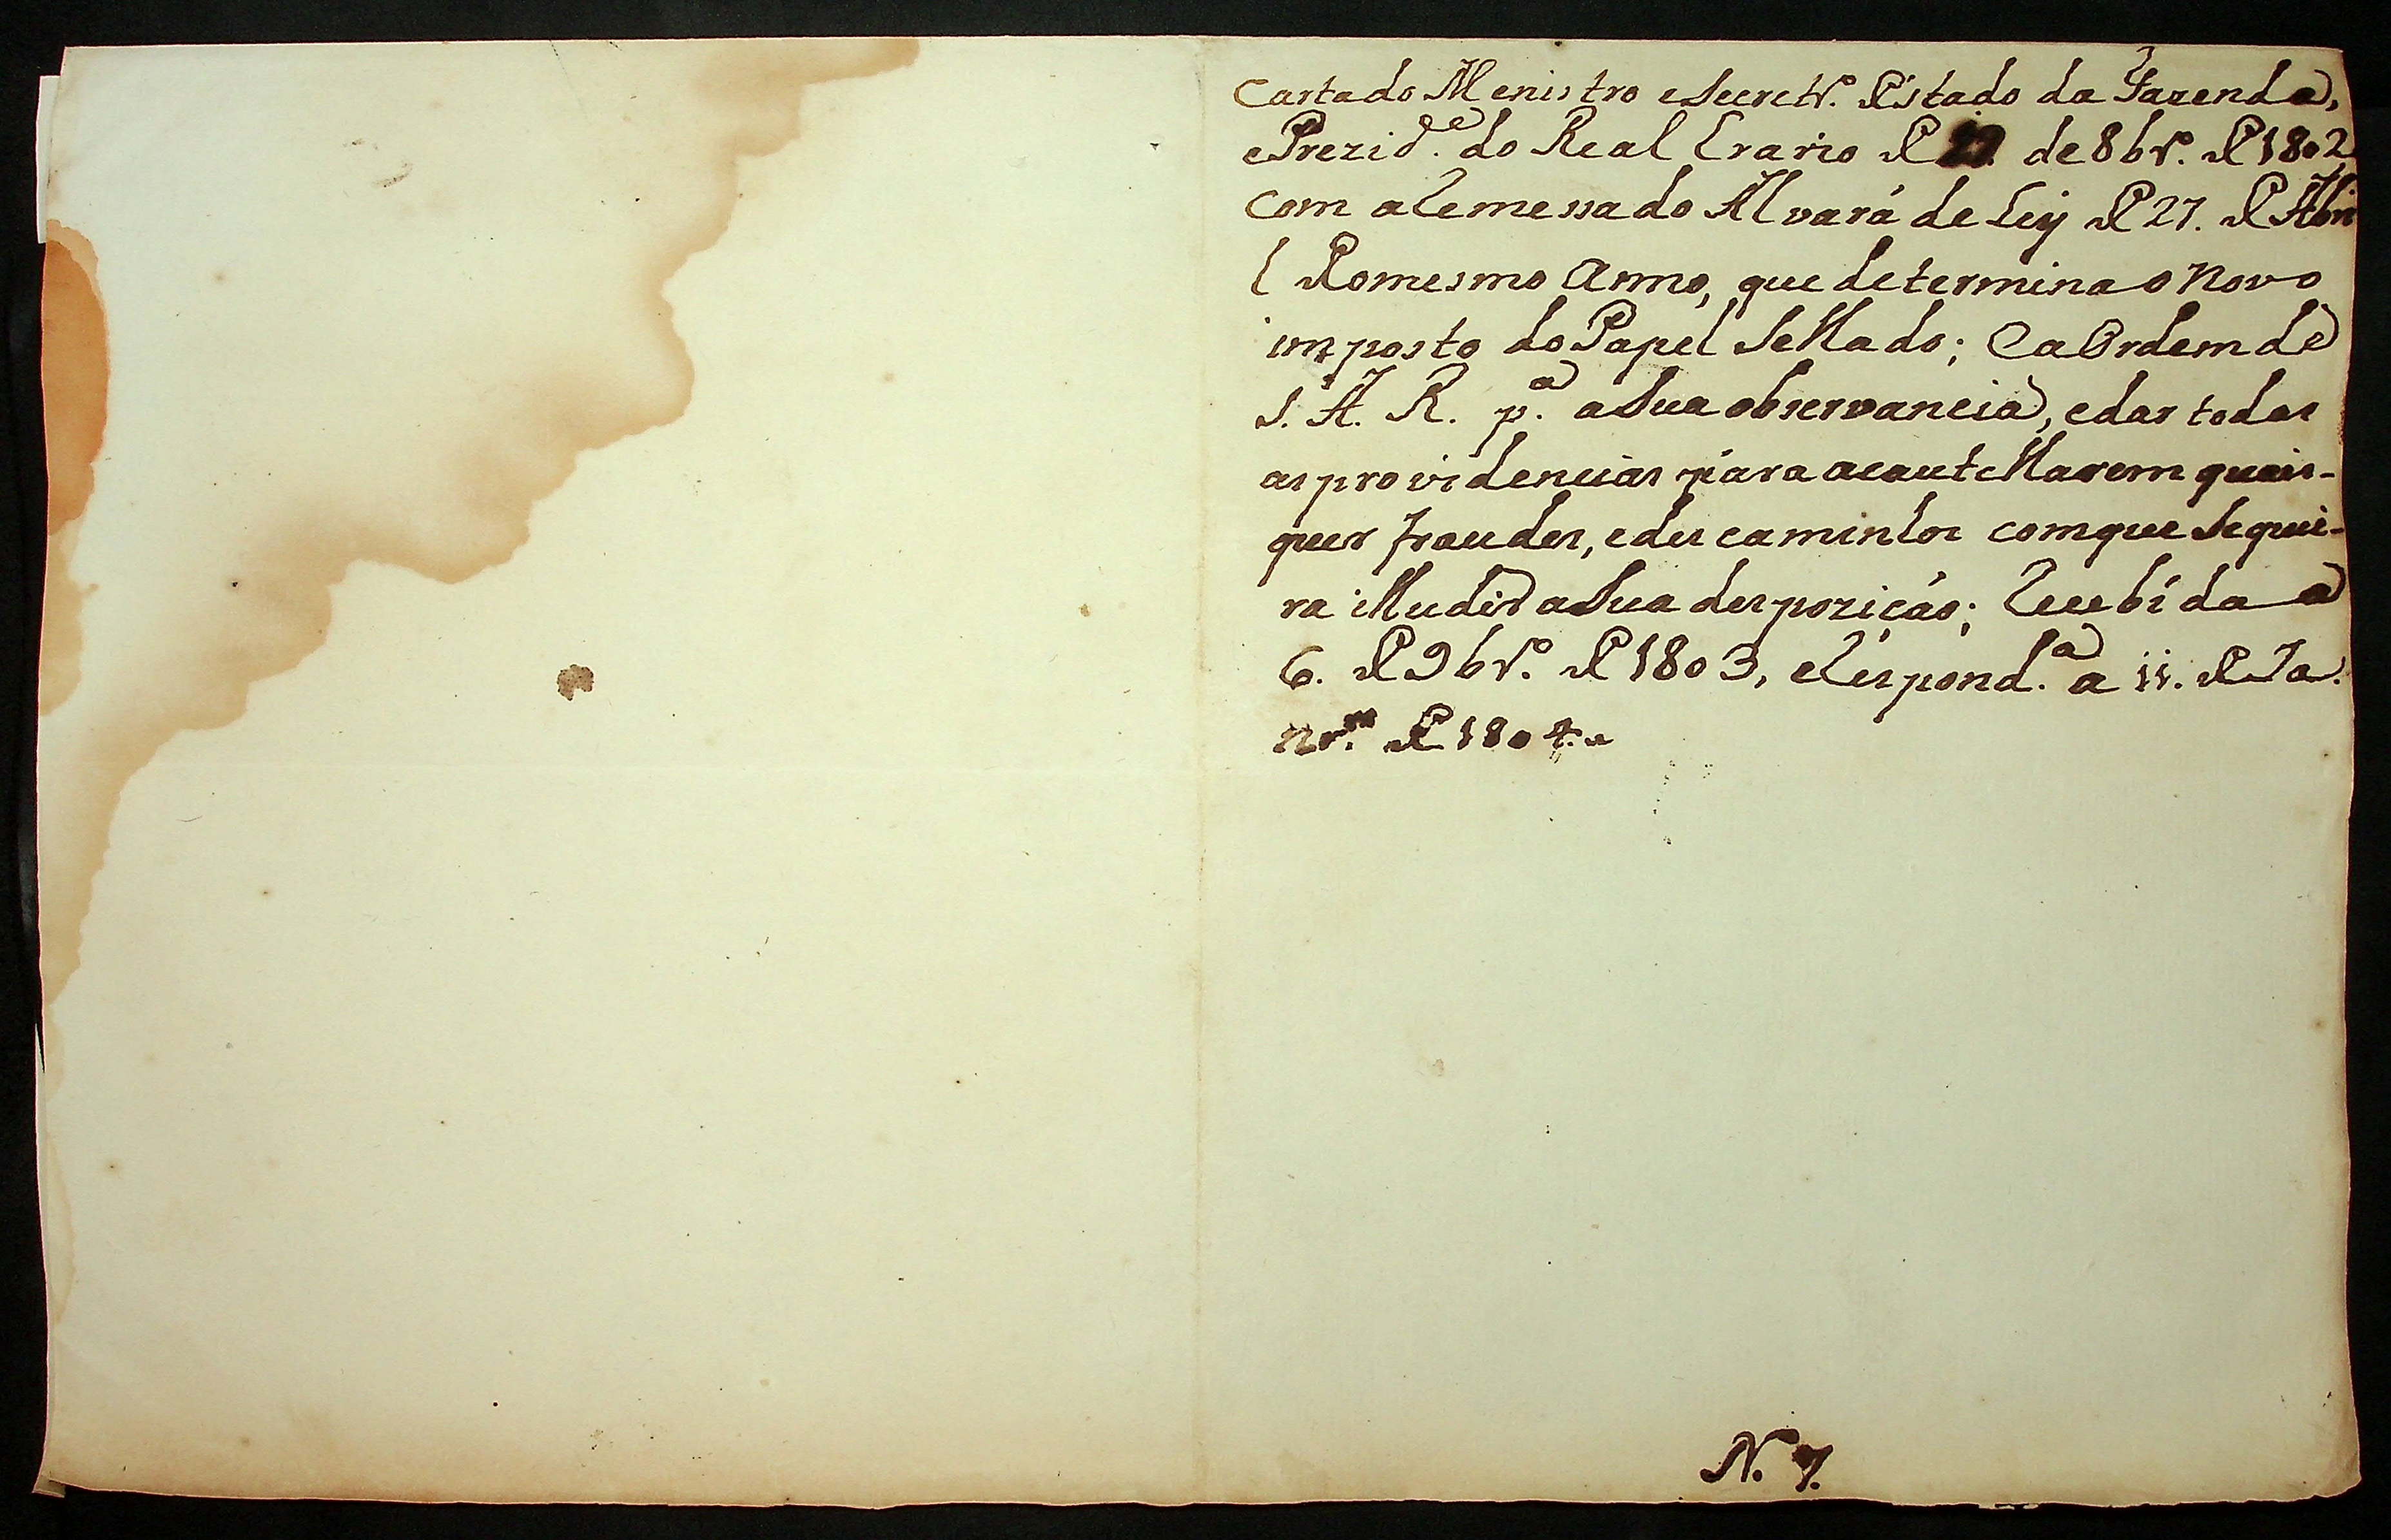 Carta do Menistro e Secretr.º d'Estado da Fazenda,
e Prezid.e do Real Erario de de 8br.º de 1802
Com a Remessa do Alvará de Ley de 27. de Abri
l do mesmo Anno, que determina o Novo
imposto do Papel Sellado; E a Ordem de
S. A. R. p.a a Sua observancia, e dar todas
as providencias para acautellarem quais-
quer fraudes, e descaminhos com que Se quei-
ra illudir a Sua despozição; Recebida a
6. de 9br.º de 1803, e Respond.a a 11. de Ja.
nr.º de 1804.
N. 7.